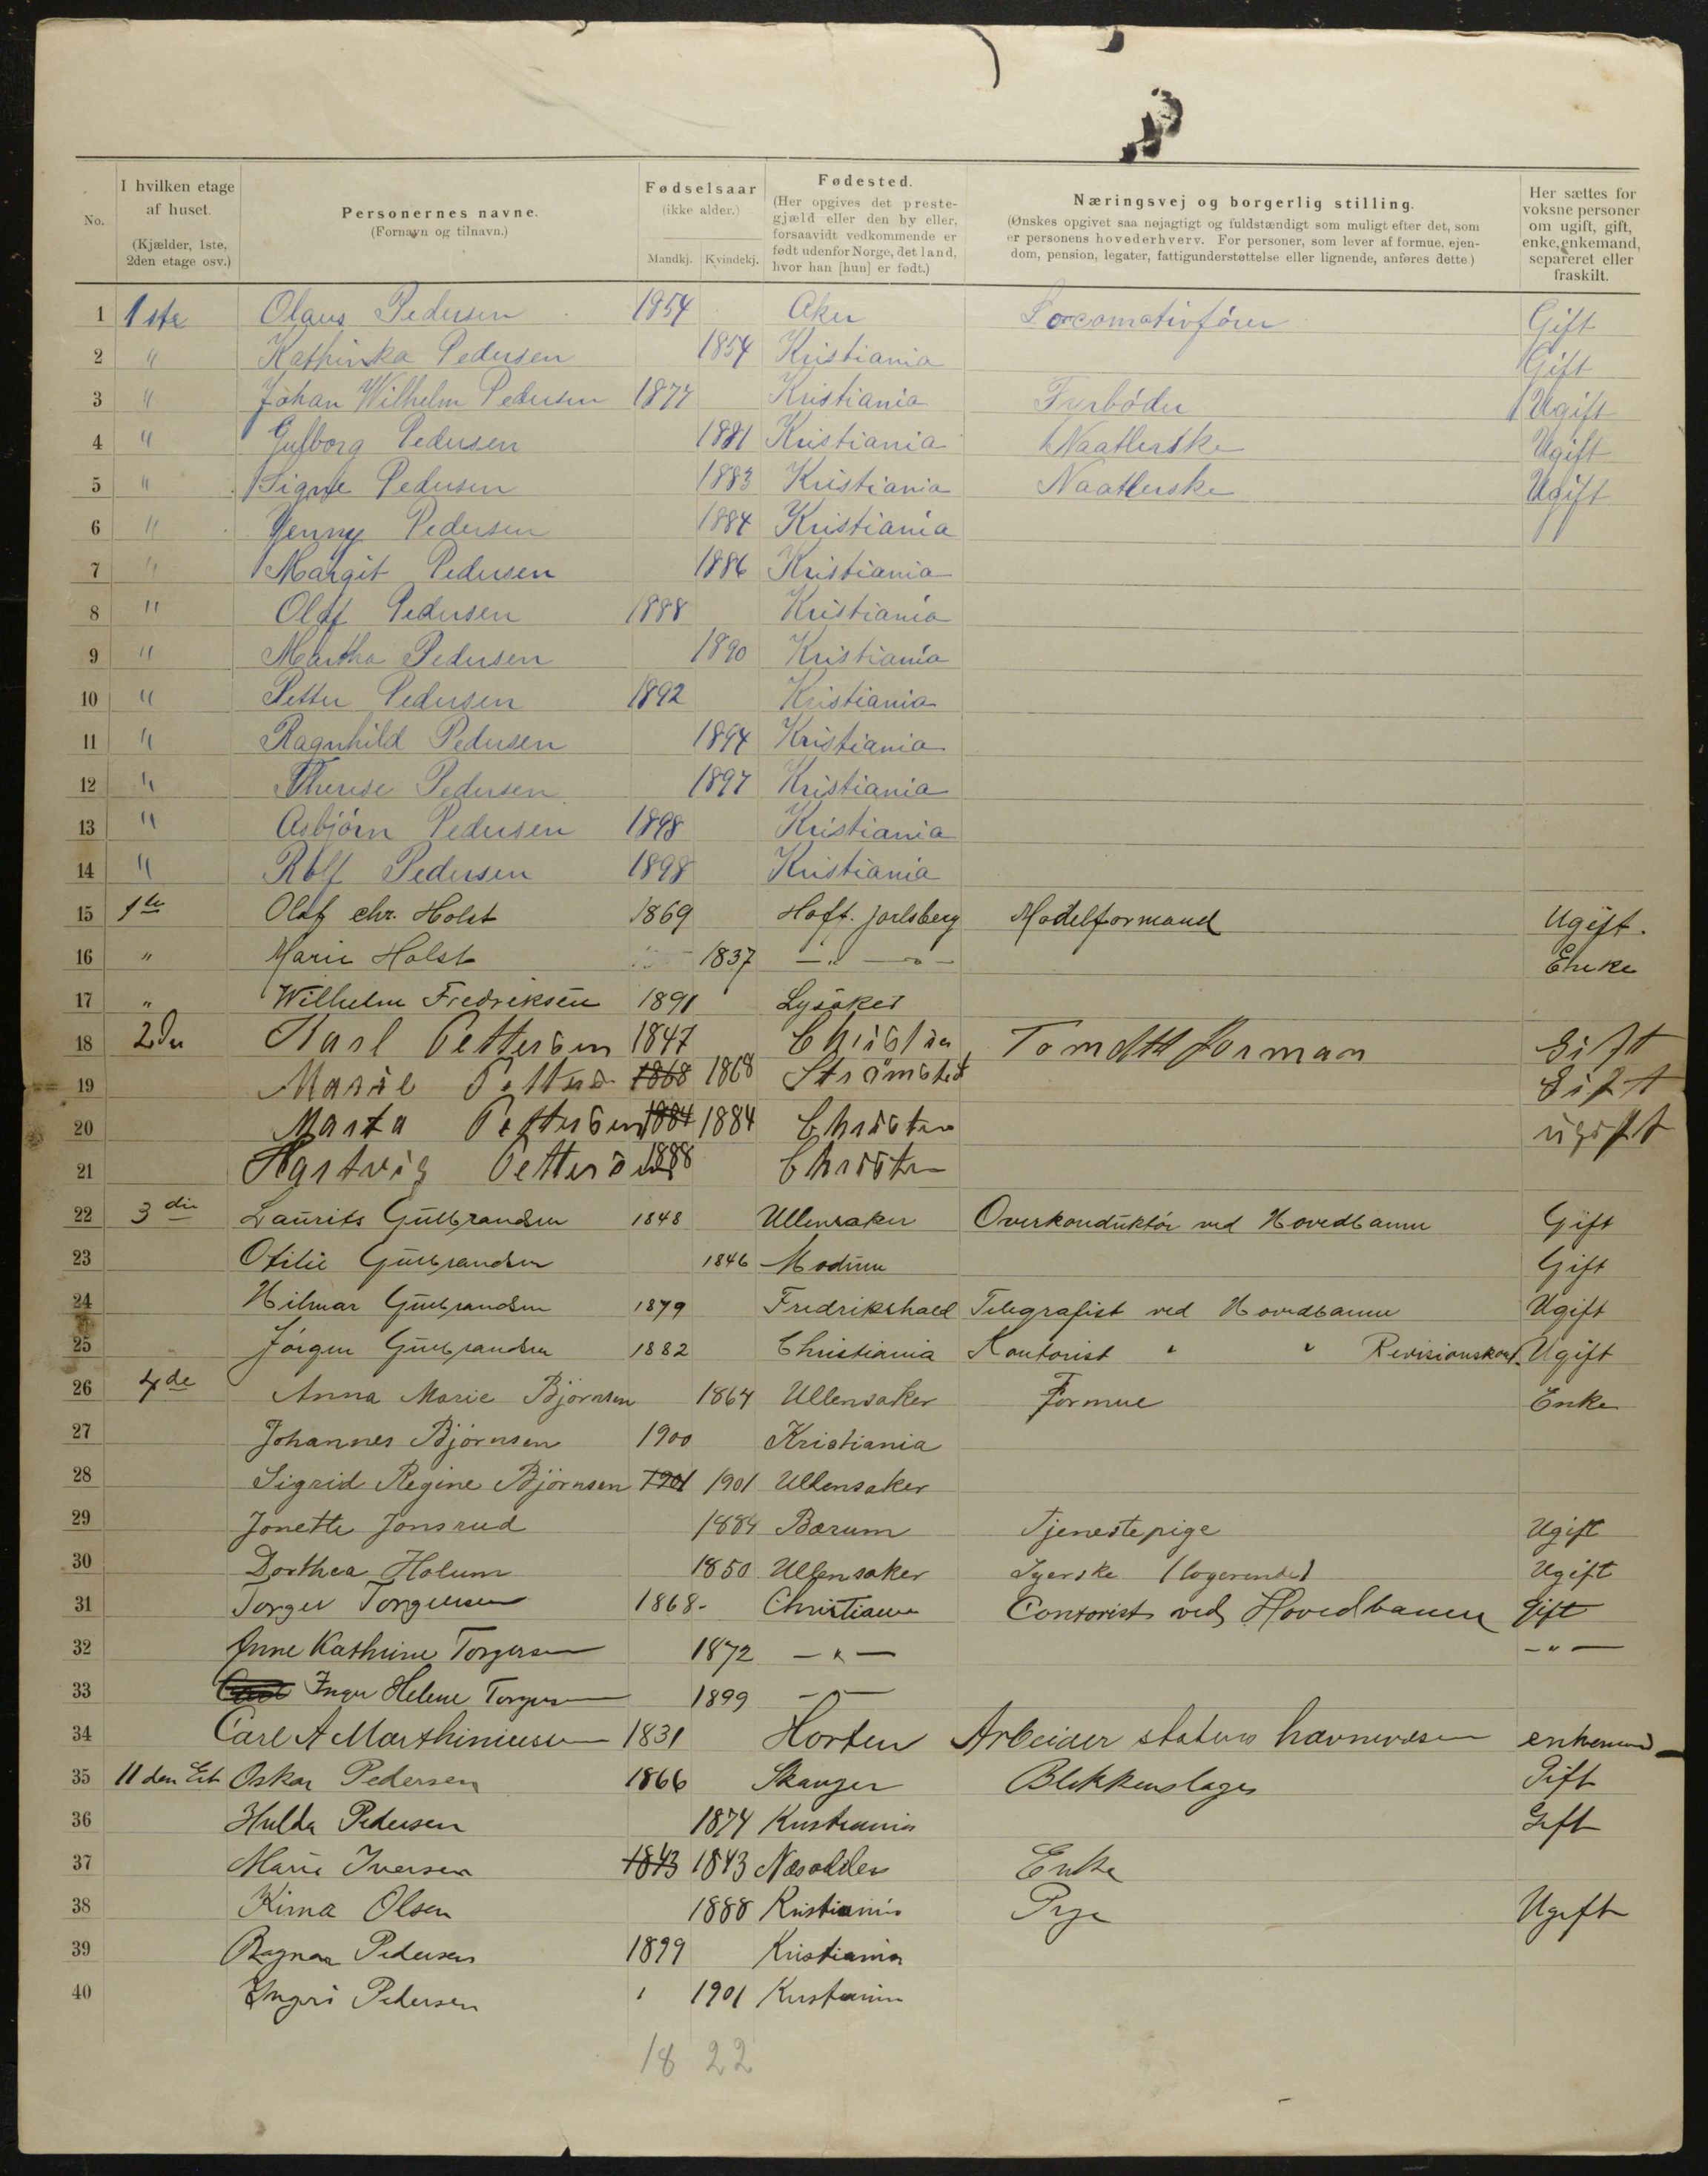 No.
I hvilken etage af huset.
(Kjælder, 1ste, 2den etage osv.)
Personernes navne.
(Fornavn og tilnavn.)
Fødselsaar
(ikke alder.)
Mandkj. Kvindekj.
Fødested.
(Her opgives det prestegjæld eller den by eller, forsaavidt vedkommende er født udenfor Norge, det land, hvor han [hun] er født.)
Næringsvej og borgerlig stilling.
(Ønskes opgivet saa nøjagtigt og fuldstændigt som muligt efter det, som er personens hovederhverv. For personer, som lever af formue, ejendom, pension, legater, fattigunderstøttelse eller lignende, anføres dette)
Her sættes for voksne personer om ugift, gift, enke, enkemand, separeret eller fraskilt.
1 1ste Olaus Pedersen 1854 Aker Locomotivfører Gift
2 " Kathinka Pedersen 1854 Kristiania Gift
3 " Johan Wilhelm Pedersen 1877 Kristiania Fyrbøder Ugift
4 " Gulborg Pedersen 1881 Kristiania Naatlerske Ugift
5 " Signe Pedersen 1883 Kristiania Naatlerske Ugift
6 " Jenny Pedersen 1884 Kristiania
7 " Margit Pedersen 1886 Kristiania
8 " Olaf Pedersen 1888 Kristiania
9 " Martha Pedersen 1890 Kristiania
10 " Petter Pedersen 1892 Kristiania
11 " Ragnhild Pedersen 1894 Kristiania
12 " Therese Pedersen 1897 Kristiania
13 " Asbjørn Pedersen 1898 Kristiania
14 " Rolf Pedersen 1898 Kristiania
15 1ste Olaf chr. Holst 1869 Hoft. jarlsberg Modelformand Ugift.
16 " Marie Holst 1837 —"— Enke
17 " Wilhelm Fredriksen 1891 Lysaker
18 2den Karl Pettersen 1847 Christia Tomdtforman Gift
19 Marie Petters 1868 1868 Strömsted Gift
20 Marta Pettersen 1884 1884 Christia ugift
21 Hartvig Pettersen 1888 Christia
22 3die Laurits Gulbrandsen 1848 Ullensaker Overkonduktør ved Hovedbanen Gift
23 Otilie Gulbrandsen 1846 Modum Gift
24 Hilmar Gulbrandsen 1879 Fredrikshald Telegrafist ved Hovedbanen Ugift
25 Jørgen Gulbrandsen 1882 Christiania Kontorist " " Revisionskont. Ugift
26 4de Anna Marie Bjørnsen 1864 Ullensaker Formue Enke
27 Johannes Bjørnsen 1900 Kristiania
28 Sigrid Regine Bjørnsen 1901 1901 Ullensaker
29 Jonette Jonsrud 1884 Bærum Tjenestepige Ugift
30 Dorthea Holum 1850 Ullensaker Syerske (logerende) Ugift
31 Torger Torgersen 1868- Christiania Contorist ved Hovedbanen Gift
32 Anne Kathrine Torgersen 1872 —"— —"—
33 Inger Helene Torgersen 1899 —"—
34 Carl A Marthiniusen 1831 Horten Arbeider statens havnevæsen enkemand
35 11den Et Oskar Pedersen 1866 Skauger Blikkenslager Gift
36 Hulda Pedersen 1874 Kristiania Gift
37 Marie Iversen 1843 1843 Næsodden Enke
38 Kima Olsen 1888 Kristiania Pige Ugift
39 Ragnar Pedersen 1899 Kristiania
40 Ingri Pedersen 1901 Kristiania
18 22